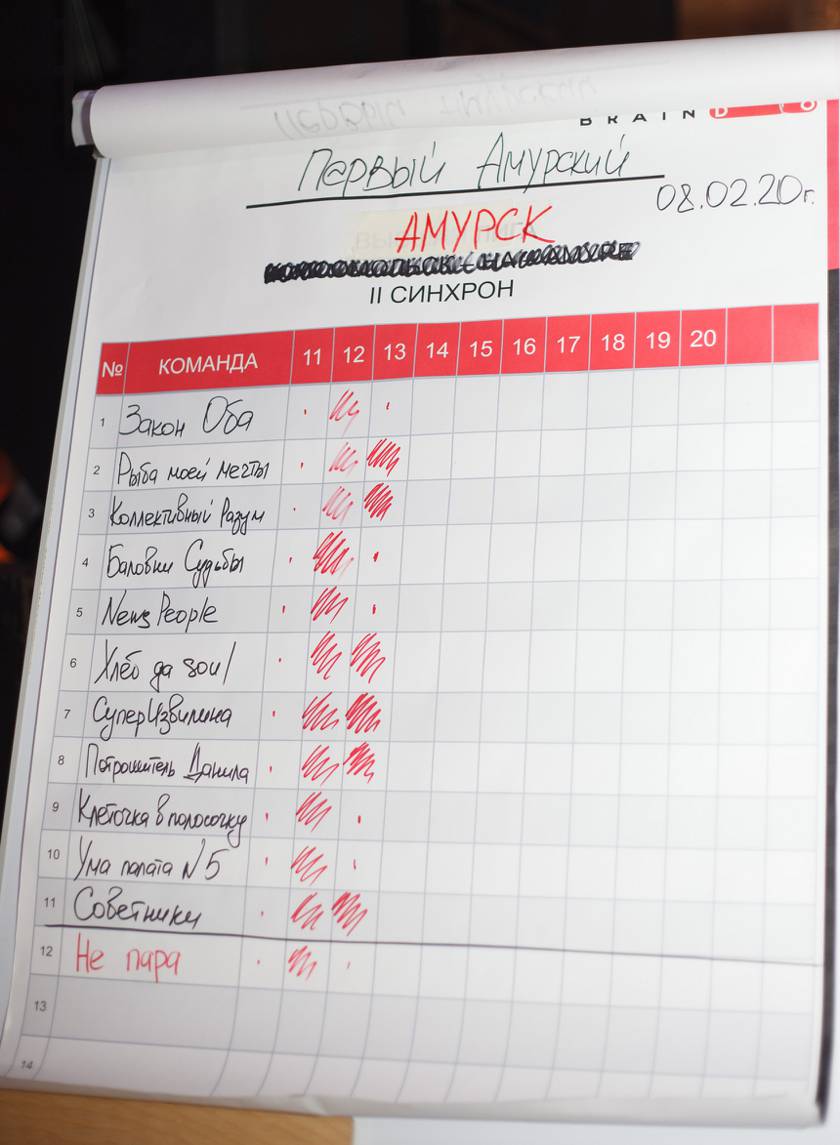 BRAIN D O
Первый Амурский
08.02.20г.
АМУРСК
II СИНХРОН
№ КОМАНДА 11 12 13 14 15 16 17 18 19 20
1 Закон Оба
2 Рыба моей мечты
3 Коллективный Разум
4 Баловни Судьбы
5 News People
6 Хлеб да soul
7 СуперИзвилина
8 Потрошитель Данила
9 Клеточка в полосочку
10 Ума палата №5
11 Советники
12 Не пара
13
14